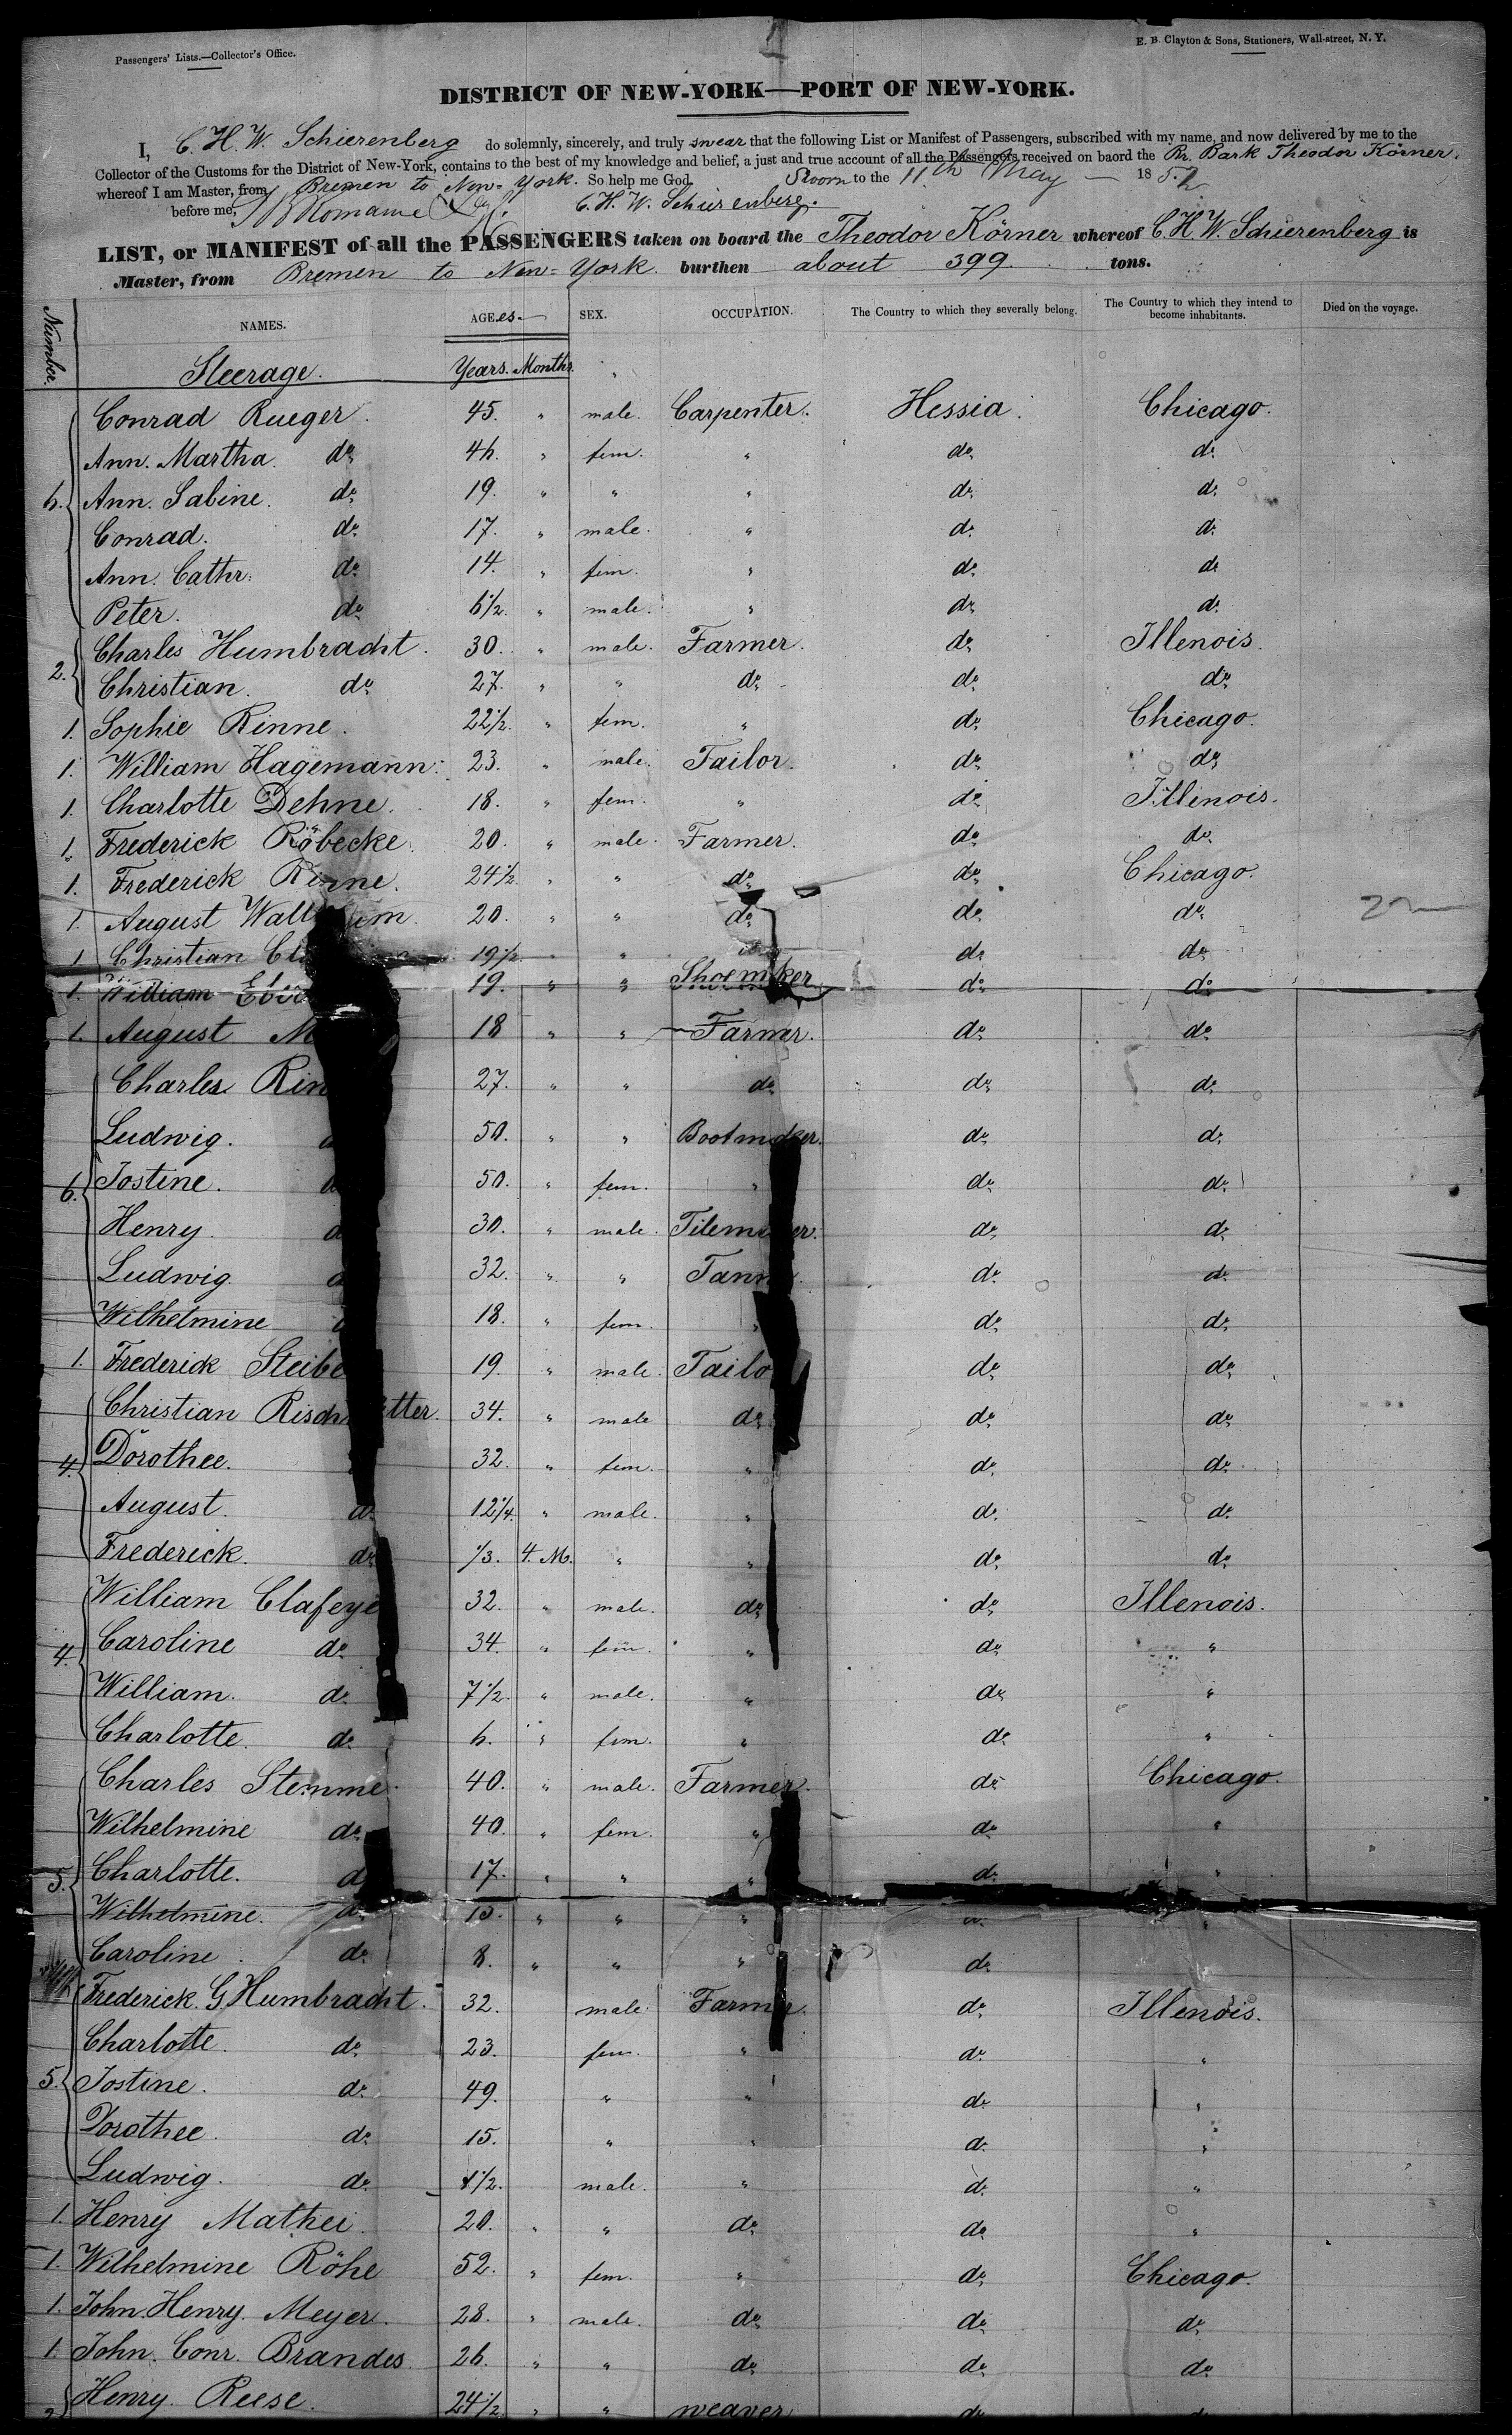 Passengers' Lists.—Collector's Office.
E. B. Clayton & Sons, Stationers, Wall-street, N. Y.
DISTRICT OF NEW-YORK—PORT OF NEW-YORK.
I, C. H. W. Schierenberg do solemnly, sincerely, and truly swear that the following List or Manifest of Passengers, subscribed with my name, and now delivered by me to the
Collector of the Customs for the District of New-York, contains to the best of my knowledge and belief, a just and true account of all the Passengers received on baord the Br. Bark Theodor Körner.
whereof I am Master, from Bremen to New-York. So help me God. Sworn to the 11th May 1852
before me, C. H. W. Schierenberg.
LIST, or MANIFEST of all the PASSENGERS taken on board the Theodor Körner whereof C. H. W. Schierenberg is
Master, from Bremen to New-York. burthen about 399. tons.
Number. NAMES. AGEes. SEX. OCCUPATION. The Country to which they severally belong. The Country to which they intend to become inhabitants. Died on the voyage.
Steerage. Years. Months.
Conrad Rueger. 45. " male. Carpenter. Hessia. Chicago.
Ann. Martha. do. 46. " fem. " do. do.
6. Ann. Sabine. do. 19. " " " do. do.
Conrad. do. 17. " male. " do. do.
Ann. Cathr: do. 14. " fem. " do. do.
Peter. do. 6 1/2. " male. " do. do.
2. Charles Humbracht. 30. " male. Farmer. do. Illenois.
Christian. do. 27. " " do. do. do.
1. Sophie Rinne. 22 1/2. " fem. " do. Chicago.
1. William Hagemann: 23. " male. Tailor. do. do.
1. Charlotte Dehne. 18. " fem. " do. Illenois.
1. Frederick Röbecke. 20. " male. Farmer. do. do.
1. Frederick Rinne. 24 1/2. " " do. do. Chicago.
1. August 20. " " do. do. do.
1 Christian 19 1/2. " " do. do.
1. William 19. " " Shoemker do. do.
1. August 18 " " Farmer. do. do.
Charles 27. " " do. do. do.
Ludwig. 50. " " Bootmaker. do. do.
6. Jostine. 50. " fem. " do. do.
Henry. 30. " male. do. do.
Ludwig. 32. " " do. do.
Wilhelmine 18. " fem. " do. do.
1. Frederick 19 " male. do. do.
Christian 34. " male do. do. do.
4. Dorothee. 32. " fem. " do. do.
August. do. 12 1/4. " male. " do. do.
Frederick. do. 1/3. 4. M. " " do. do.
William 32. " male. do. do. Illenois.
4. Caroline do. 34. " fem. " do. "
William. do. 7 1/2. " male. " do. "
Charlotte. do. 6. " fem. " do. "
Charles Stemme. 40. " male. Farmer. do. Chicago.
Wilhelmine do. 40. " fem. " do. "
5. Charlotte. do. 17. " " " do. "
Wilhelmine. do. 15. " " " do. "
Caroline. do. 8. " " " do.
Frederick. G Humbracht. 32. male. Farmer. do. Illenois.
Charlotte. do. 23. fem. " do. "
5. Jostine. do. 49. " " do. "
Dorothee. do. 15. " " do. "
Ludwig. do. 1/2. male. " do. "
1. Henry Mathei. 20. " " do. do. "
1. Wilhelmine Röhe 52. " fem. " do. Chicago.
1. John. Henry. Meyer. 28. " male. do. do. do.
1. John. Conr. Brandes 26. " " do. do. do.
2 Henry. Reese. 24 1/2 " " weaver do. do.